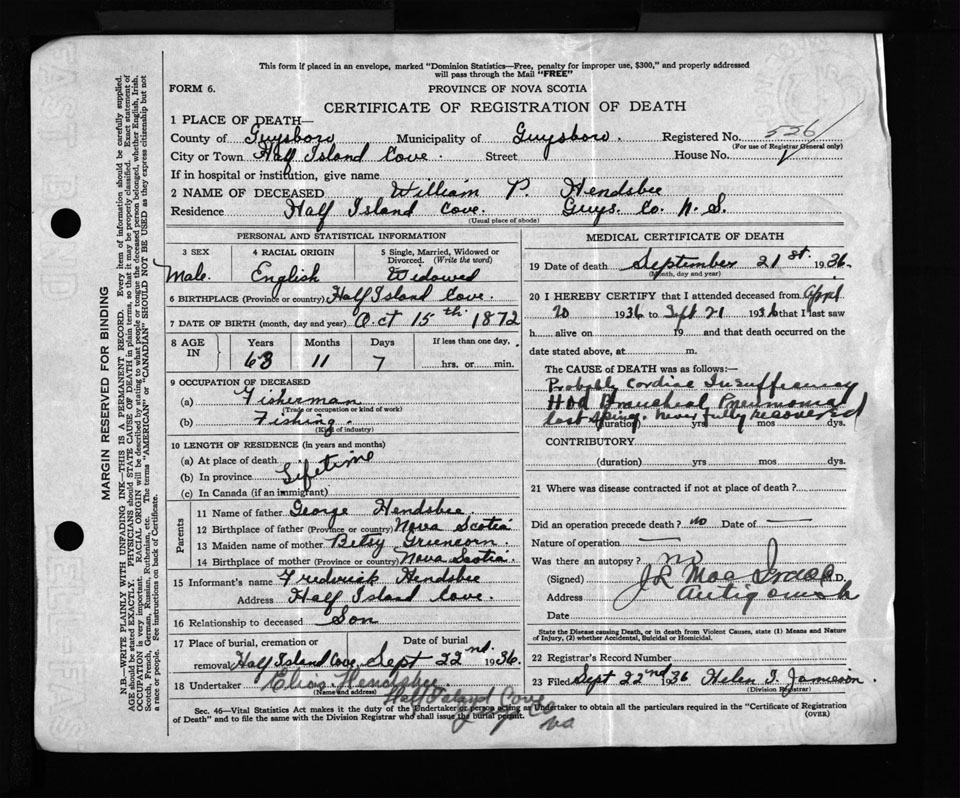 This form if placed in an envelope, marked "Dominion Statistics—Free, penalty for improper use, $300," and properly addressed
will pass through the Mail "FREE"
FORM 6.
PROVINCE OF NOVA SCOTIA
CERTIFICATE OF REGISTRATION OF DEATH
1 PLACE OF DEATH—
County of Guysboro Municipality of Guysboro. Registered No. 556
(For use of Registrar General only)
City or Town Half Island Cove. Street House No.
If in hospital or institution, give name
2 NAME OF DECEASED William P. Hendsbee
Residence Half Island Cove. Guys. Co. N. S.
(Usual place of abode)
PERSONAL AND STATISTICAL INFORMATION
3 SEX 4 RACIAL ORIGIN 5 Single, Married, Widowed or
Divorced. (Write the word)
Male. English Widowed
6 BIRTHPLACE (Province or country) Half Island Cove.
7 DATE OF BIRTH (month, day and year) Oct 15th 1872
8 AGE IN Years Months Days If less than one day,
63 11 7 hrs. or min.
9 OCCUPATION OF DECEASED
(a) Fisherman
(Trade or occupation or kind of work)
(b) Fishing.
(Kind of industry)
10 LENGTH OF RESIDENCE (in years and months)
(a) At place of death
(b) In province Lifetime
(c) In Canada (if an immigrant)
Parents
11 Name of father George Hendsbee
12 Birthplace of father (Province or country) Nova Scotia
13 Maiden name of mother Betsy Greencorn.
14 Birthplace of mother (Province or country) Nova Scotia.
15 Informant's name Frederick Hendsbee
Address Half Island Cove.
16 Relationship to deceased Son
17 Place of burial, cremation or Date of burial
removal Half Island Cove. Sept 22nd. 1936.
18 Undertaker Hendsbee
(Name and address)
Half Island Cove
MEDICAL CERTIFICATE OF DEATH
19 Date of death September 21st. 1936.
(Month, day and year)
20 I HEREBY CERTIFY that I attended deceased from April
20 1936 to Sept 21 1936 that I last saw
h alive on 19 and that death occurred on the
date stated above, at m.
The CAUSE of DEATH was as follows:—
Probably Cardiac Insufficiency
Had Broncheal Pneumonia
last spring. never fully recovered
(duration) yrs mos dys.
CONTRIBUTORY
(duration) yrs mos dys.
21 Where was disease contracted if not at place of death?
Did an operation precede death? no Date of
Nature of operation
Was there an autopsy? no
(Signed) M.D.
Address Antigonish
Date
State the Disease causing Death, or in death from Violent Causes, state (1) Means and Nature
of Injury, (2) whether Accidental, Suicidal or Homicidal.
22 Registrar's Record Number
23 Filed Sept 22nd 1936 Helen I. Jamieson.
(Division Registrar)
Sec. 46—Vital Statistics Act makes it the duty of the Undertaker or person acting as Undertaker to obtain all the particulars required in the "Certificate of Registration
of Death" and to file the same with the Division Registrar who shall issue the burial permit.
(OVER)
MARGIN RESERVED FOR BINDING
N.B.—WRITE PLAINLY WITH UNFADING INK—THIS IS A PERMANENT RECORD. Every item of information should be carefully supplied.
AGE should be stated EXACTLY. PHYSICIANS should STATE CAUSE OF DEATH in plain terms, so that it may be properly classified. Exact statement of
OCCUPATION is very important. RACIAL ORIGIN will be described by stating to what people or tongue the deceased person belonged, whether English, Irish,
Scotch, French, German, Russian, Ruthenian, etc. The terms "AMERICAN" or "CANADIAN" SHOULD NOT BE USED as they express citizenship but not
a race or people. See instructions on back of Certificate.